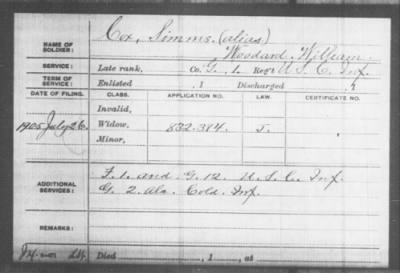 NAME OF SOLDIER: Cox, Simms. (alias)
Woodard, William.
SERVICE: Late rank, Co. G, 1. Reg't U. S. C. Inf.
TERM OF SERVICE: Enlisted , 1 Discharged , 1
DATE OF FILING. CLASS. APPLICATION NO. LAW. CERTIFICATE NO.
Invalid,
1905 July 26. Widow, 832.384. J.
Minor,
ADDITIONAL SERVICES: F. 1. and G. 12. U. S. C. Inf.
G. 2. Ala. Cold. Inf.
REMARKS:
Died , 1 , at